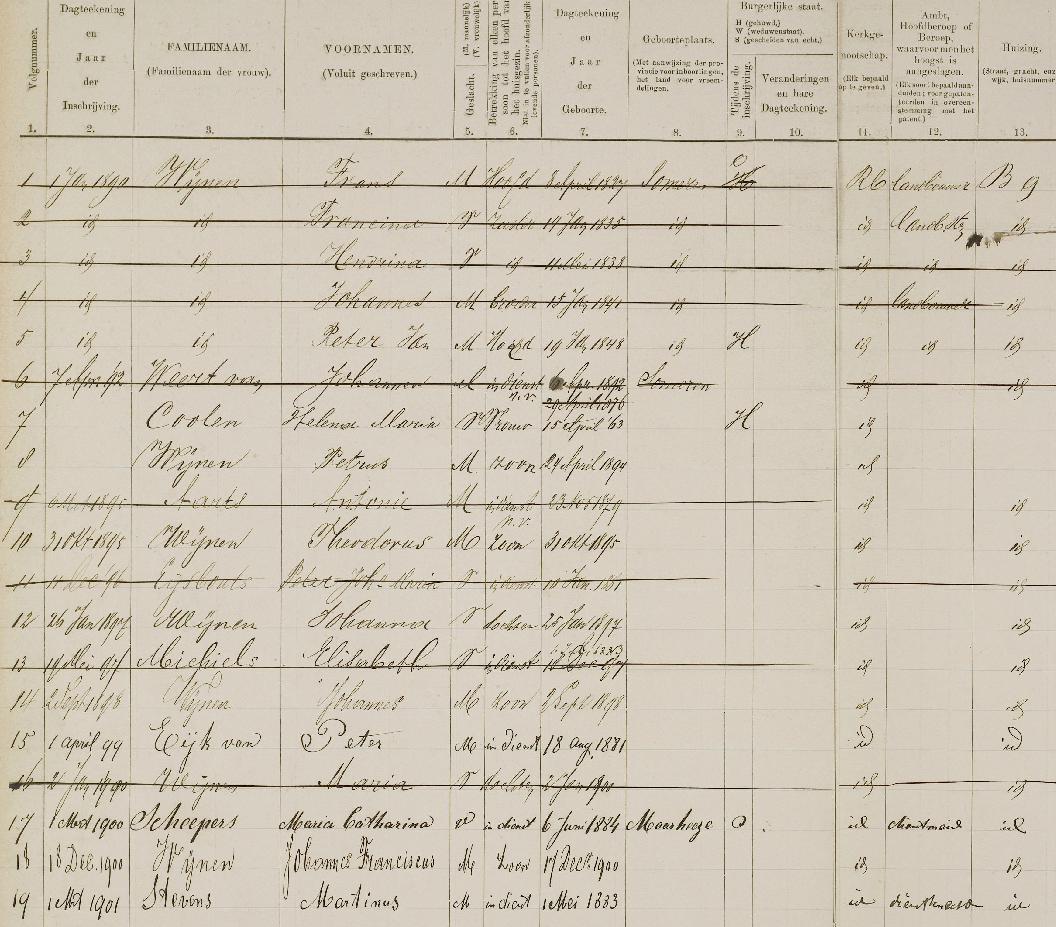 Volgnummer.
Dagteekening
en
Jaar
der
Inschrijving.
FAMILIENAAM.
(Familienaam der vrouw).
VOORNAMEN.
(Voluit geschreven.)
Geslacht. (M. mannelijk) (V. vrouwelijk)
Betrekking van elken persoon tot het hoofd van het huisgezin.
Dagteekening
en
Jaar
der
Geboorte.
Geboorteplaats.
(Met aanwijzing der provincie voor inboorlingen, het land voor vreemdelingen.
Burgerlijke staat.
H (gehuwd.)
W (weduwenstaat).
S (gescheiden van echt.)
Tijdens de inschrijving.
Veranderingen
en hare
Dagteekening.
Kerkgenootschap.
(Elk bepaald op te geven.)
Ambt,
Hoofdberoep of
Beroep.
waarvoor men het
hoogst is
aangeslagen.
Huizing.
1. 2. 3. 4. 5. 6. 7. 8. 9. 10. 11. 12. 13.
1 1 Jan 1890 Wijnen Frans M Hoofd 8 April 1827 Someren RC landbouwer B 9
2 id id Francina V Zuster 19 Jan 1835 id id id
3 id id Hendrina V id 11 Mei 1838 id id id id
4 id id Johannes M Broeder 15 Jan 1841 id id landbouwer id
5 id id Peter Jan M Hoofd 19 Jan 1848 id H id id id
6 Weert van Johannes M in dienst Someren id id
n.v. 20 April 1876
7 Coolen Helena Maria V Vrouw 15 April '63 H id
8 Wijnen Petrus M zoon 24 April 1894 id
9 Aarts Antonie M in dienst 23 Nov 1879 id id
n.v.
10 31 Okt 1895 Wijnen Theodorus M Zoon 31 Okt 1895 id id
11 11 Dec 96 Peter Joh. Maria id id
12 26 Jan 1897 Wijnen Johanna V dochter 25 Jan 1897 id id
13 Michiels Elisabeth V in dienst id id
14 2 Sept 1898 Wijnen Johannes M Zoon 2 Sept 1898 id id
15 1 april 99 Eijk van Peter M in dienst 18 Aug. 1881 id id
16 Wijnen Maria V dochter 2 Jan 1900 id id
17 1 Mrt 1900 Scheepers Maria Catharina V in dienst 6 Juni 1884 Maarheeze O id dienstmeid id
18 18 Dec. 1900 Wijnen Johannes Franciscus M Zoon 17 Dec. 1900 id id
19 1 Mrt 1901 Stevens Martinus M in dienst 1 Mei 1883 id dienstknecht id